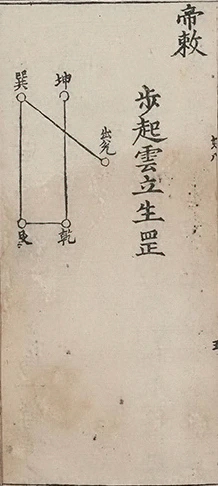 帝敕
步起雲立生罡
出兊
坤
巽
乾
艮